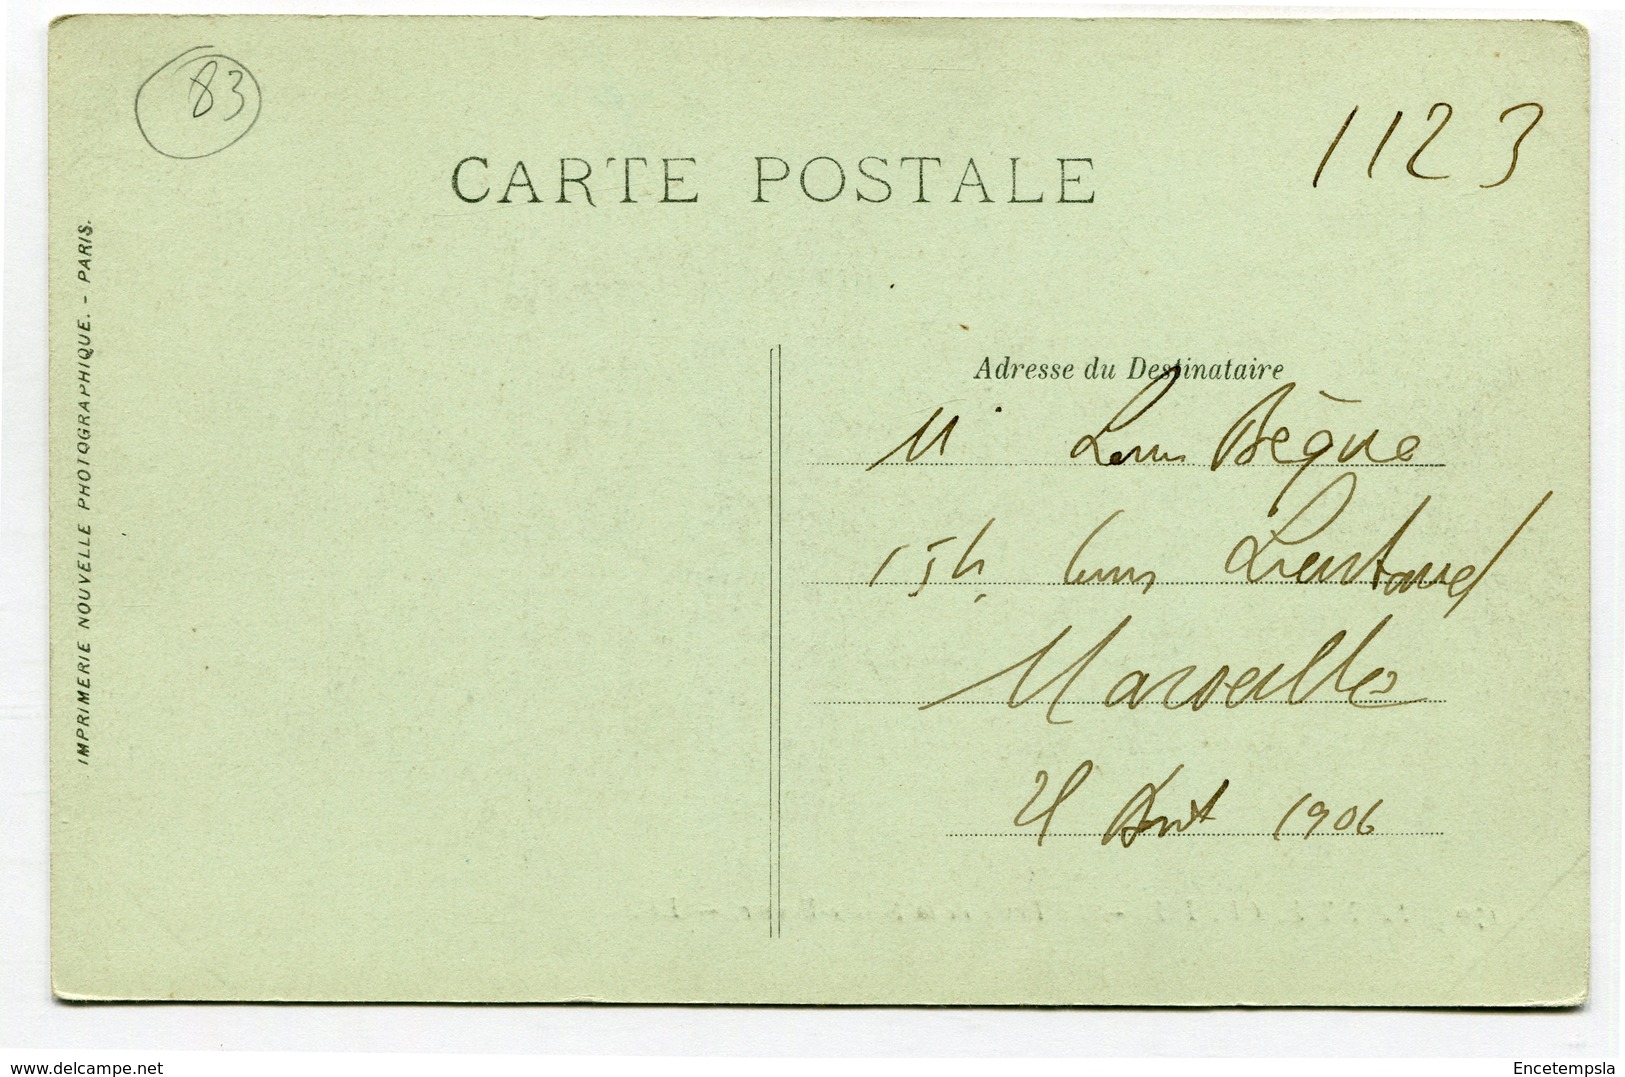 83
1123
CARTE POSTALE
IMPRIMERIE NOUVELLE PHOTOGRAPHIQUE. - PARIS.
Adresse du Destinataire
Mr Louis Bèque
154, Cours Lieutaud
Marseille
21 Août 1906
www.delcampe.net
Encetempsla